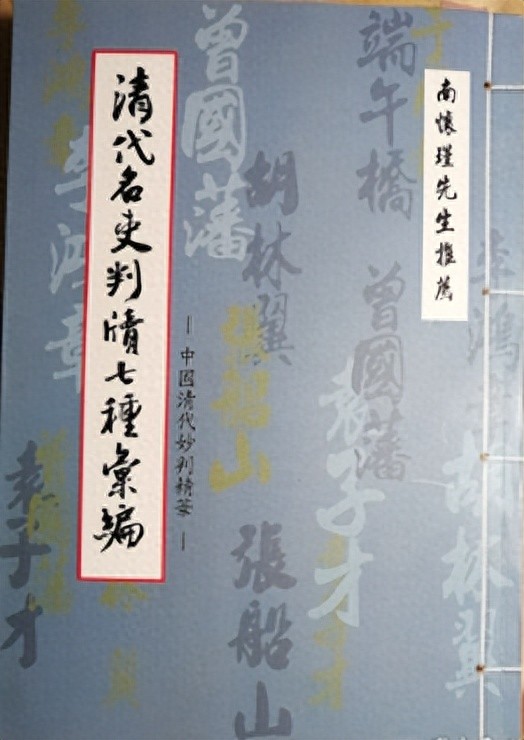 南懷瑾先生推薦
清代名吏判牘七種彙編
—中国清代妙判精華—
端午橋
曾國藩
胡林翼
李鴻章
張船山
曾國藩
袁子才
李鴻
胡林翼
張船山
袁子才